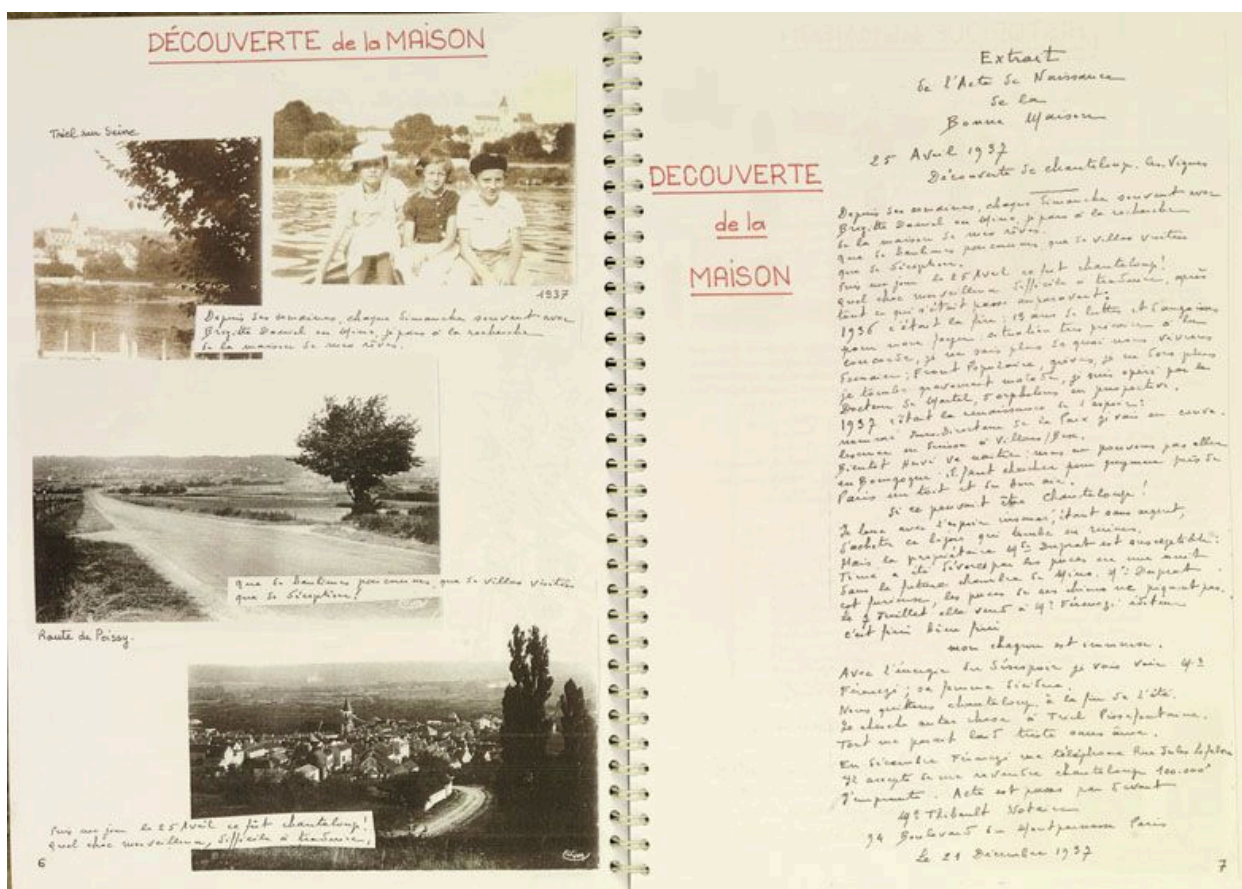 DÉCOUVERTE de la MAISON
Triel sur Seine
1937
Depuis des semaines, chaque Dimanche souvent avec
Brigitte Dauvel en Mino, je pars à la recherche
de la maison de mes rêves.
que de banlieues parcourues, que de villas visitées
que de déception!
Route de Poissy.
Puis un jour le 25 Avril ce fût chanteloup!
quel choc merveilleux, difficile à traduire,
6
DECOUVERTE
de la
MAISON
Extrait
de l'Acte de Naissance
de la
Bonne Maison
25 Avril 1937
Découverte de chanteloup. les. Vignes
Depuis des semaines, chaque Dimanche souvent avec
Brigitte Dauvel en Mino, je pars à la recherche
de la maison de mes rêves.
que de banlieues parcourues, que de villas visitées
que de déception.
Puis un jour le 25 Avril ce fût chanteloup!
quel choc merveilleux difficile à traduire, après
tout ce qui s'était passé auparavant:
1936 c'était la fin: 13 ans de luttes et d'angoisses
pour mon foyer. situation très précaire à la
concorde, je ne sais plus de quoi nous vivrons
demain; Front Populaire, grèves, je ne dors plus
je tombe gravement malade, je suis opéré par le
Docteur de Martel, 5 orphelins en perspective.
1937 c'était la renaissance de l'espoir!
nommé Sous.directeur de la Paix je vais en conva.
lescence en Suisse à Villars/Bex.
Bientôt Hervé va naître: nous ne pouvons pas aller
en Bourgogne. il faut chercher pour guymene près de
Paris un toit et du bon air.
Si ce pouvait être chanteloup!
Je loue avec l'espoir insensé, étant sans argent,
d'acheter ce logis qui tombe en ruines.
Mais la propriétaire Mme Duprat est susceptible:
Tima a été dévorée par les puces en une nuit
dans la future chambre de Mino. Mme Duprat
est furieuse, les puces de ses chiens ne piquent pas.
Le 9 Juillet elle vend à Mr Férenczi éditeur
c'est fini bien fini
mon chagrin est immense.
Avec l'énergie du désespoir je vais voir Mr
Férenczi; sa femme décidera.
Nous quittons chanteloup à la fin de l'été.
Je cherche autre chose à Triel Pissefontaine.
Tout me parait laid triste sans âme.
En décembre Férenczi me téléphone Rue Jules Lefebvre
Il accepte de me revendre chanteloup 100.000
J'emprunte. Acte est passé par devant
Me Thibault Notaire
94 Boulevard du Montparnasse Paris
Le 21 Décembre 1937
7